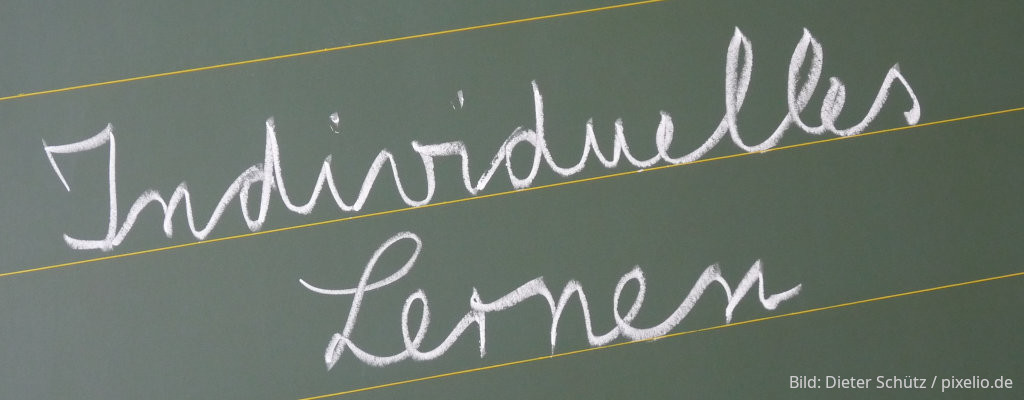 Individuelles
Lernen
Bild: Dieter Schütz / pixelio.de